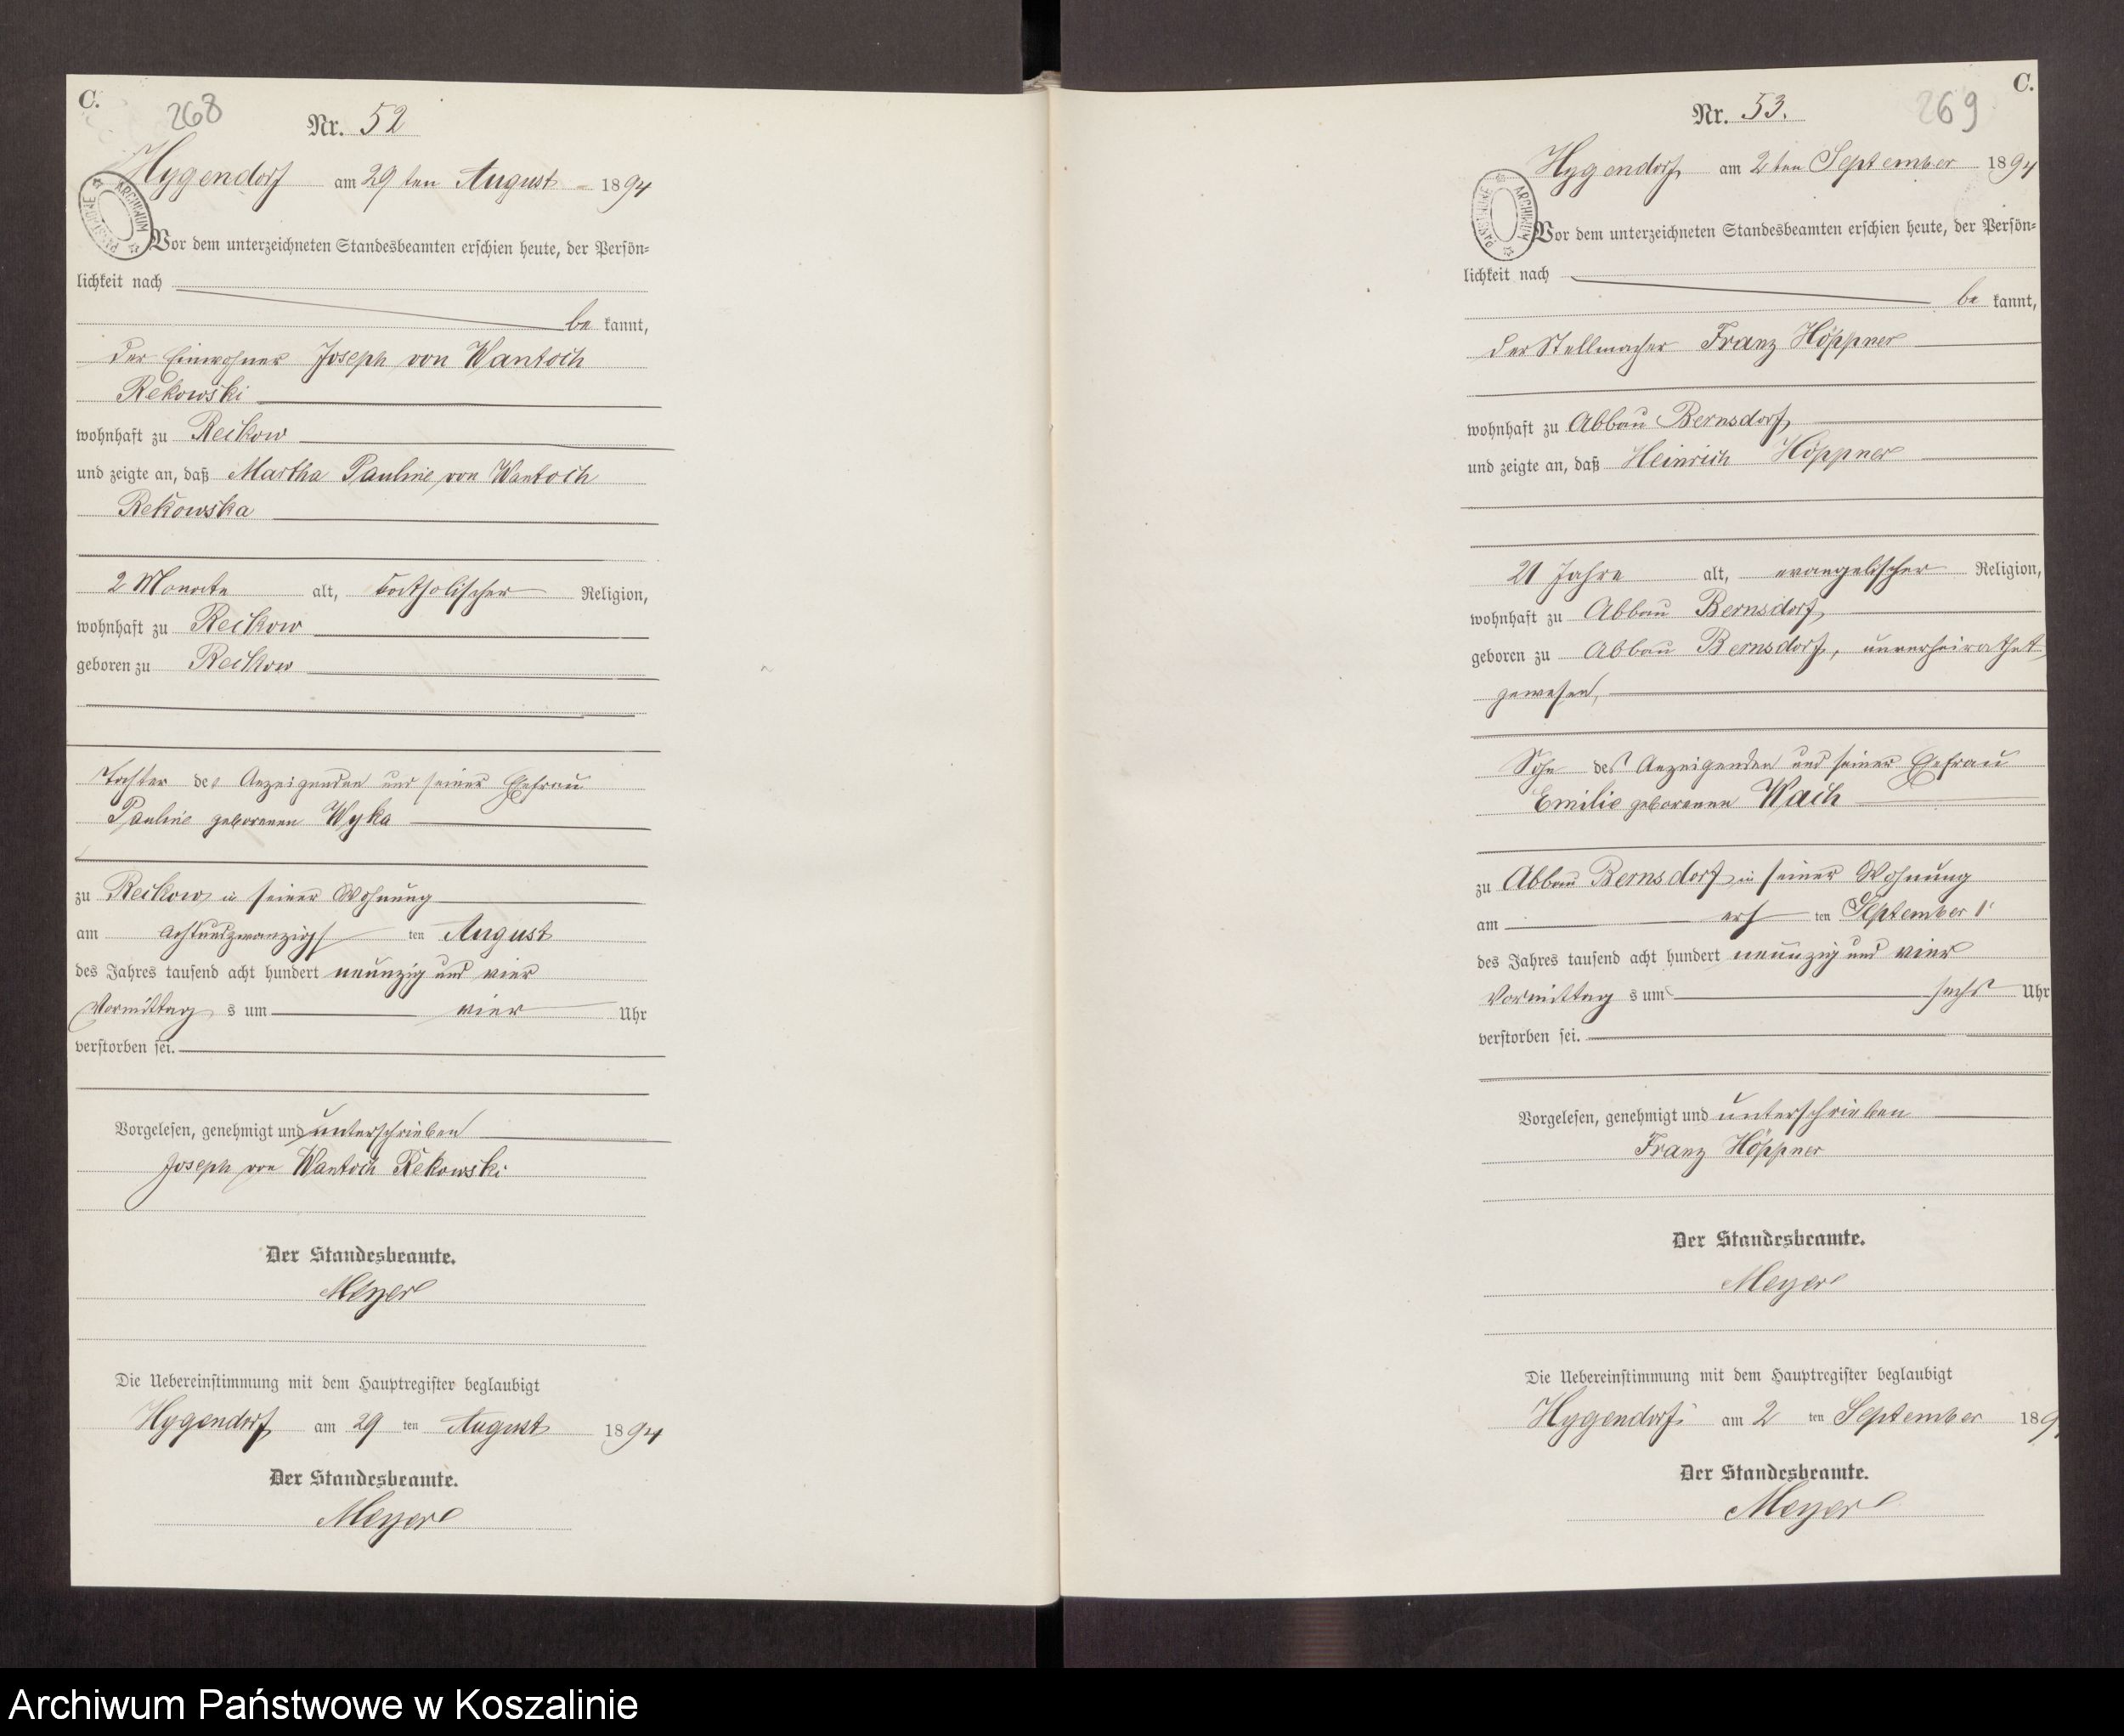 C.
268
Nr. 52
Hygendorf am 29 ten August 1894
ARCHIWUM PAŃSTWOWE
Vor dem unterzeichneten Standesbeamten erschien heute, der Persön-
lichkeit nach
be kannt,
der Einwohner Joseph von Wantoch
Rekowski
wohnhaft zu Reckow
und zeigte an, daß Martha Pauline von Wantoch
Rekowska
2 Monate alt, katholischer Religion,
wohnhaft zu Reckow
geboren zu Reckow
Tochter des Anzeigenden und seiner Ehefrau
Pauline geborenen Wyka
zu Reckow in seiner Wohnung
am achtundzwanzigst ten August
des Jahres tausend acht hundert neunzig und vier
Vormittag s um vier Uhr
verstorben sei.
Vorgelesen, genehmigt und unterschrieben
Joseph von Wantoch Rekowski
Der Standesbeamte.
Meyer
Die Uebereinstimmung mit dem Hauptregister beglaubigt
Hygendorf am 29 ten August 1894
Der Standesbeamte.
Meyer
C.
269
Nr. 53.
Hygendorf am 2 ten September 1894
ARCHIWUM PAŃSTWOWE
Vor dem unterzeichneten Standesbeamten erschien heute, der Persön-
lichkeit nach
be kannt,
der Stellmacher Franz Höppner
wohnhaft zu Abbau Bernsdorf
und zeigte an, daß Heinrich Höppner
21 Jahre alt, evangelischer Religion,
wohnhaft zu Abbau Bernsdorf
geboren zu Abbau Bernsdorf, unverheirathet
gewesen,
Sohn des Anzeigenden und seiner Ehefrau
Emilie geborenen Wach
zu Abbau Bernsdorf in seiner Wohnung
am erst ten September
des Jahres tausend acht hundert neunzig und vier
Vormittag s um sechs Uhr
verstorben sei.
Vorgelesen, genehmigt und unterschrieben
Franz Höppner
Der Standesbeamte.
Meyer
Die Uebereinstimmung mit dem Hauptregister beglaubigt
Hygendorf am 2 ten September 189
Der Standesbeamte.
Meyer
Archiwum Państwowe w Koszalinie